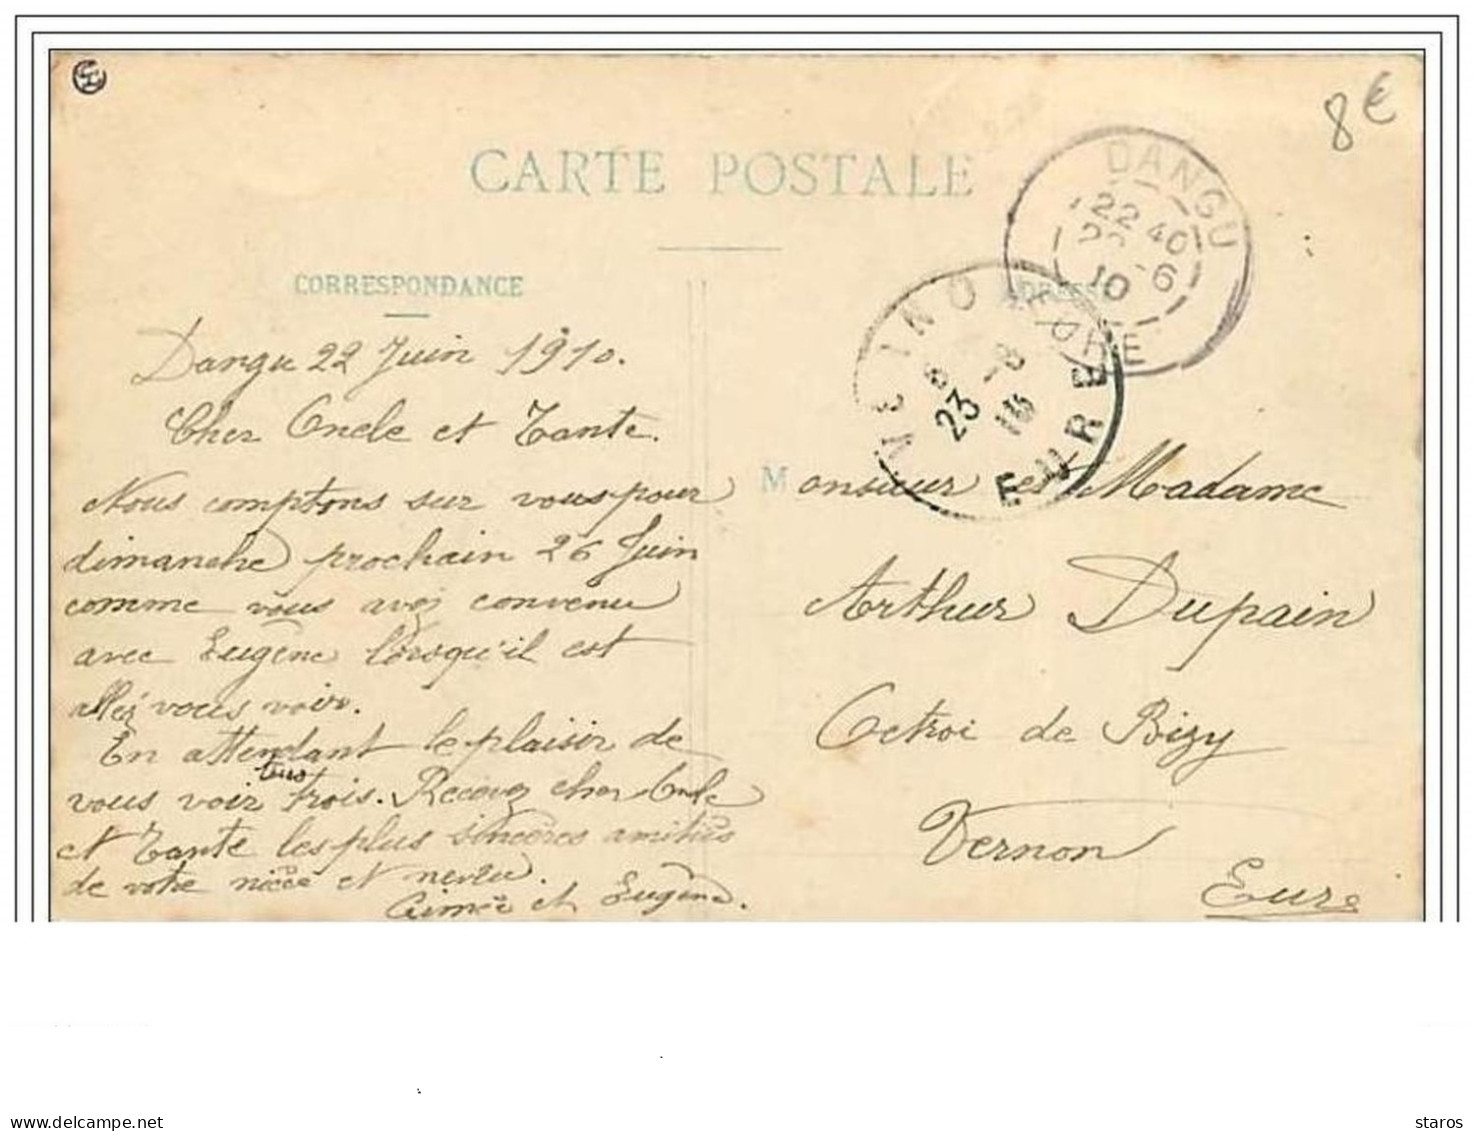 8€
CARTE POSTALE
DANGU
22 40
6
10
EURE
CORRESPONDANCE
ADRESSE
VERNON
23 -6
10
EURE
Dangu 22 Juin 1910.
Cher Oncle et Tante.
Nous comptons sur vous pour
dimanche prochain 26 Juin
comme vous avez convenu
avec Eugène lorsqu'il est
allez vous voir.
En attendant le plaisir de
vous voir tous trois. Recevez cher Oncle
et Tante les plus sincères amitiés
de votre nièce et neveu.
Aimée et Eugène.
Monsieur et Madame
Arthur Dupain
Octroi de Bizy
Vernon
Eure
delcampe.net
staros